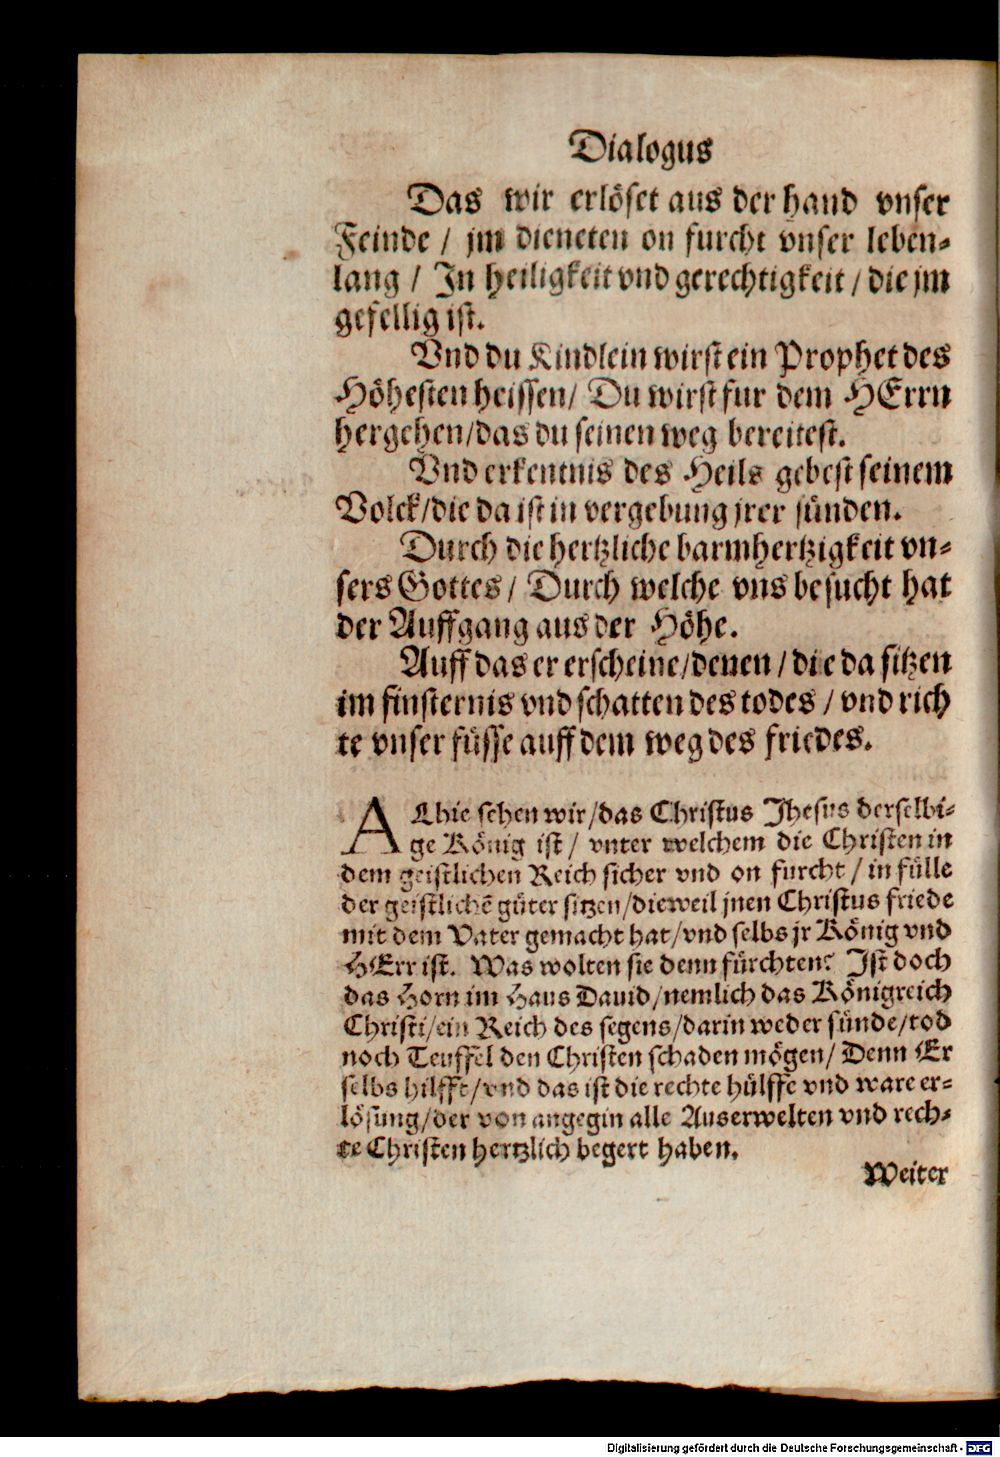 Dialogus
Das wir erlöset aus der hand vnser
Feinde / jm dieneten on furcht vnser leben-
lang / In heiligkeit vnd gerechtigkeit / die jm
gefellig ist.
Vnd du Kindlein wirst ein Prophet des
Höhesten heissen / Du wirst fur dem HErrn
hergehen / das du seinen weg bereitest.
Vnd erkentnis des Heils gebest seinem
Volck / die da ist in vergebung jrer sünden.
Durch die hertzliche barmhertzigkeit vn-
sers Gottes / Durch welche vns besucht hat
der Auffgang aus der Höhe.
Auff das er erscheine / denen / die da sitzen
im finsternis vnd schatten des todes / vnd rich
te vnser füsse auff dem weg des friedes.
ALhie sehen wir / das Christus Jhesus derselbi-
ge König ist / vnter welchem die Christen in
dem geistlichen Reich sicher vnd on furcht / in fülle
der geistlichē güter sitzen / dieweil jnen Christus friede
mit dem Vater gemacht hat / vnd selbs jr König vnd
HErr ist. Was wolten sie denn fürchten? Ist doch
das Horn im Haus Dauid / nemlich das Königreich
Christi / ein Reich des segens / darin weder sünde / tod
noch Teuffel den Christen schaden mögen / Denn Er
selbs hilfft / vnd das ist die rechte hülffe vnd ware er-
lösung / der von angegin alle Auserwelten vnd rech-
te Christen hertzlich begert haben.
Weiter
Digitalisierung gefördert durch die Deutsche Forschungsgemeinschaft - DFG